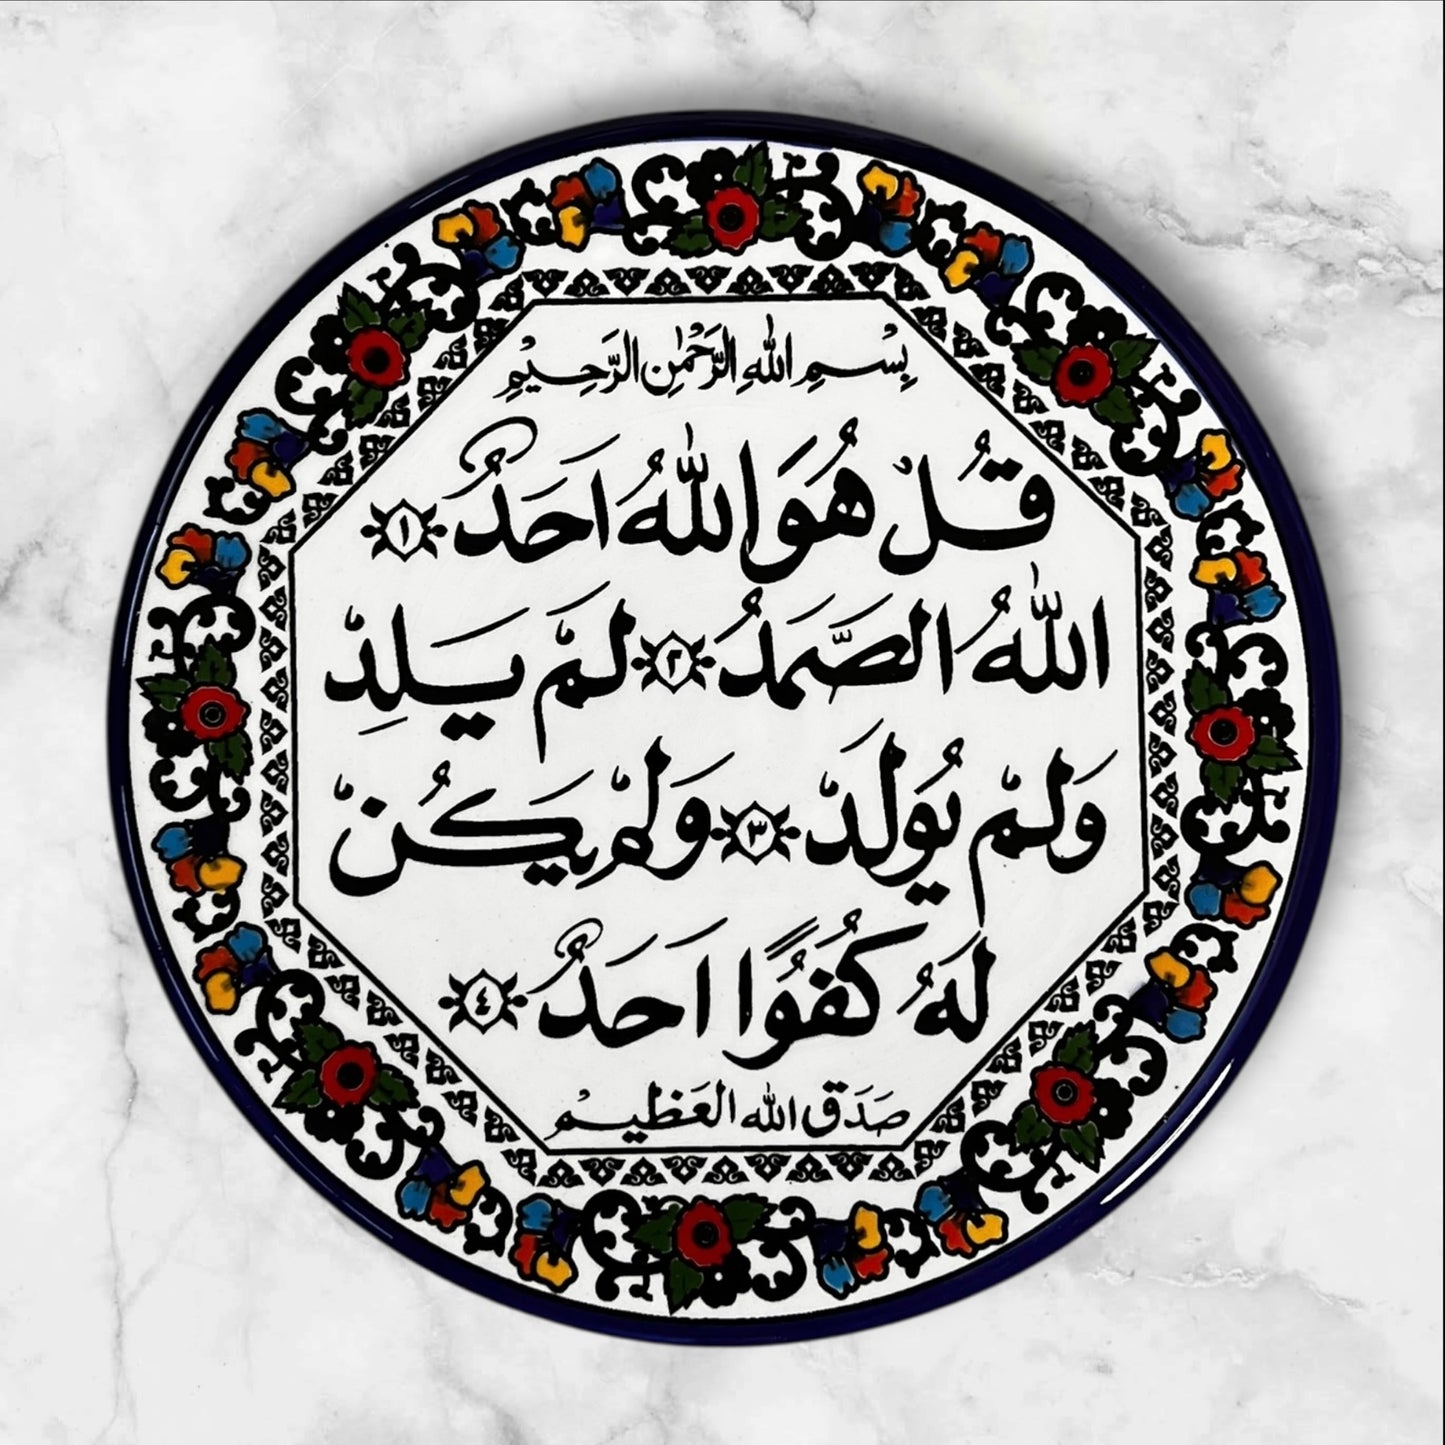 بِسْمِ اللّٰهِ الرَّحْمٰنِ الرَّحِيْمِ
قُلْ هُوَ اللّٰهُ اَحَدٌ ١
اللّٰهُ الصَّمَدُ ٢ لَمْ يَلِدْ
وَلَمْ يُولَدْ ٣ وَلَمْ يَكُنْ
لَهُ كُفُوًا اَحَدٌ ٤
صَدَقَ اللّٰه العَظيم